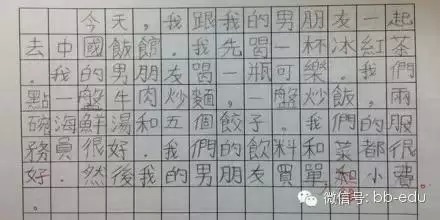 今天,我跟我的男朋友一起
去中國飯館.我先喝一杯冰紅茶
.我的男朋友喝一瓶可樂.我們
點一盤牛肉炒麵,一盤炒飯,兩
碗海鮮湯和五個餃子.我們的服
務員很好.我們的飲料和菜都很
好.然後我的男朋友買單和小費
.
微信号: bb-edu